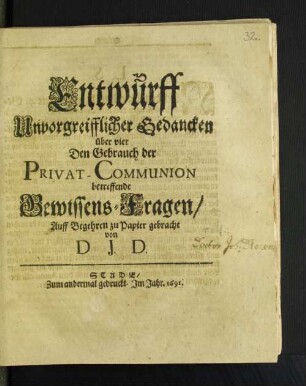 32.
Entwurff
Unvorgreifflicher Gedancken
über vier
Den Gebrauch der
PRIVAT-COMMUNION
betreffende
Gewissens-Fragen/
Auff Begehren zu Papier gebracht
von
D. J. D.
STADE/
Zum andermal gedruckt. Im Jahr. 1691.